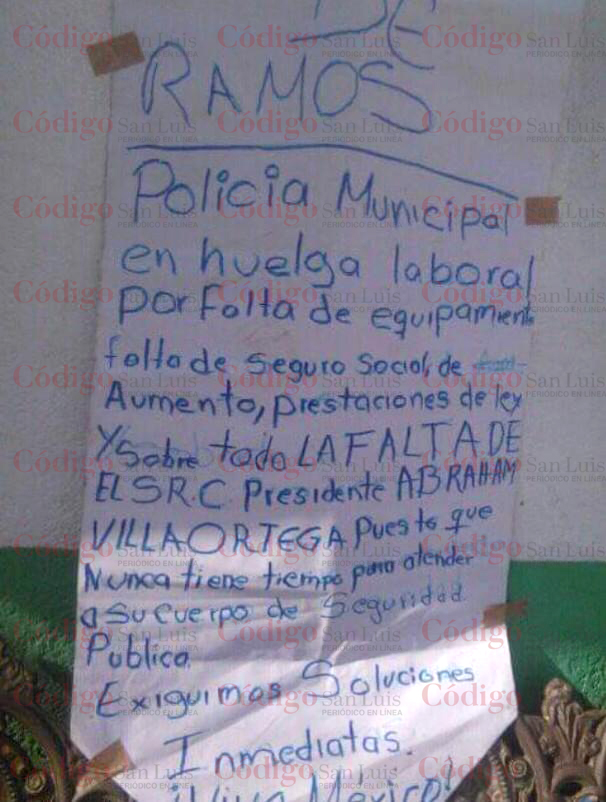 DE
RAMOS
Policia Municipal
en huelga laboral
por Falta de equipamiento
falta de Seguro Social, de
Aumento, prestaciones de ley
Y Sobre todo LA FALTA DE
EL S.R.C. Presidente ABRAHAM
VILLA ORTEGA Puesto que
Nunca tiene tiempo para atender
a su cuerpo de Seguridad
Publica.
Exiguimos Soluciones
Inmediatas.
¡Viva México!
Código San Luis
PERIÓDICO EN LÍNEA